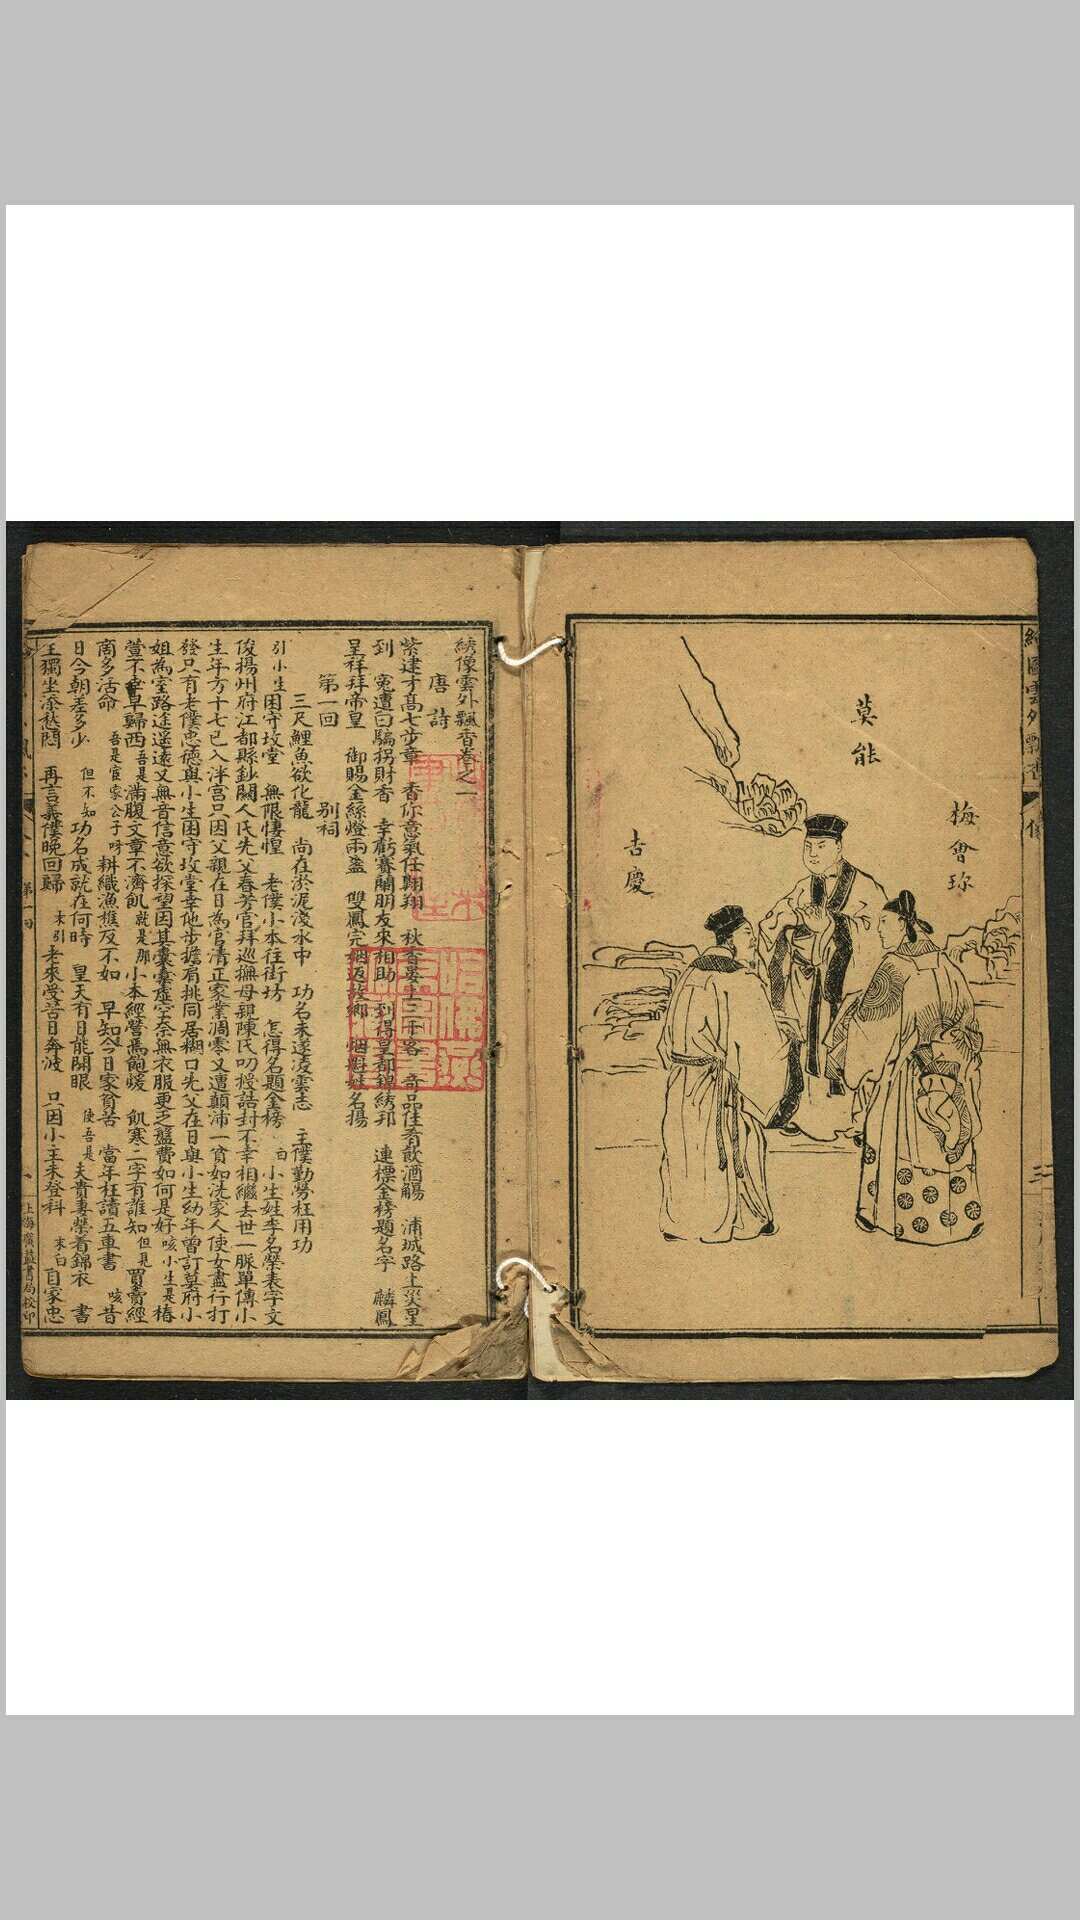 莫能
梅會珎
吉慶
綉像雲外飄香卷之一
唐詩
紫逮才高七步章　香你意氣任翺翔　秋香晏上三千客　奇品佳肴飲酒觴　浦城路上災星
到　冤遭曰騙拐財香　幸虧賽蘭朋友來相助　到得皇都錦綉邦　連標金榜題名字　麟鳳
呈祥拜帝皇　御賜金絲燈兩盞　雙鳳完姻返故鄉　姓名揚
第一回　別祠
三尺鯉魚欲化龍　尚在淤泥淺水中　功名未遂凌雲志　主僕勤勞枉用功
引小生困守坟堂　無限悽惶　老僕小本往街坊　怎得名題金榜　白小生姓李名榮表字文
俊揚州府江都縣鈔關人氏先父春芳官拜巡撫母親陳氏叨授誥封不幸相繼去世一脈單傳小
生年方十七已入泮宮只因父親在日為官清正家業凋零又遭顛沛一貧如洗家人使女盡行打
發只有老僕忠德與小生困守坟堂幸他步擔肩挑同居糊口先父在日與小生幼年曾訂莫府小
姐為室路途遙遠又無音信意欲探望因其囊橐虛空奈無衣服更乏盤費如何是好咳小生是椿
萱不幸早歸西吾是滿腹文章不濟飢就是那小本經營為飽煖　飢寒二字有誰知但見買賣經
商多活命　吾是官家公子呀耕織漁樵反不如　早知今日家貧苦　當年枉讀五車書　咳昔
日今朝差多少　但不知功名成就在何時　皇天有日能開眼　使吾是夫貴妻榮着錦衣　書
王獨坐添愁悶　再言義僕晚回歸　末引老來受苦日奔波　只因小主未登科　末白自家忠
第一回
上海廣益書局校印